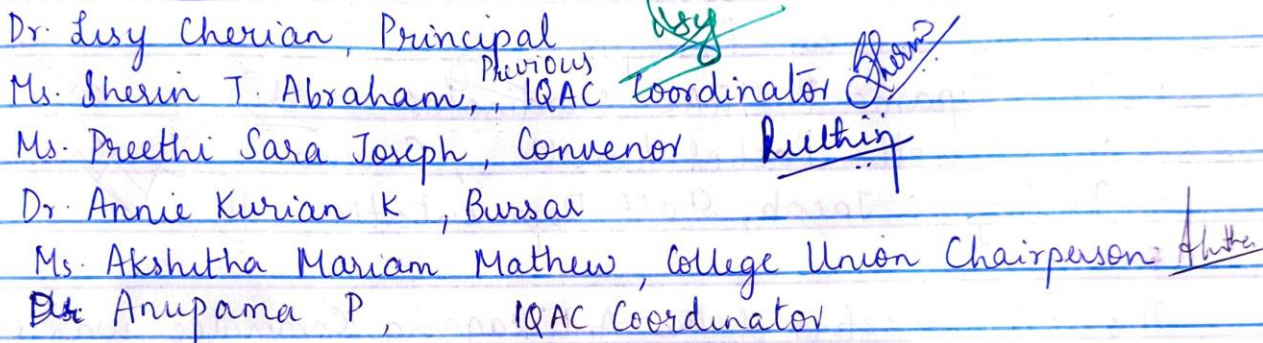 Dr. Lisy Cherian, Principal Lisy
Ms. Sherin T. Abraham, Previous, IQAC Coordinator Sherin
Ms. Preethi Sara Joseph, Convenor
Dr. Annie Kurian K, Bursar
Ms. Akshitha Mariam Mathew, College Union Chairperson
Anupama P, IQAC Coordinator